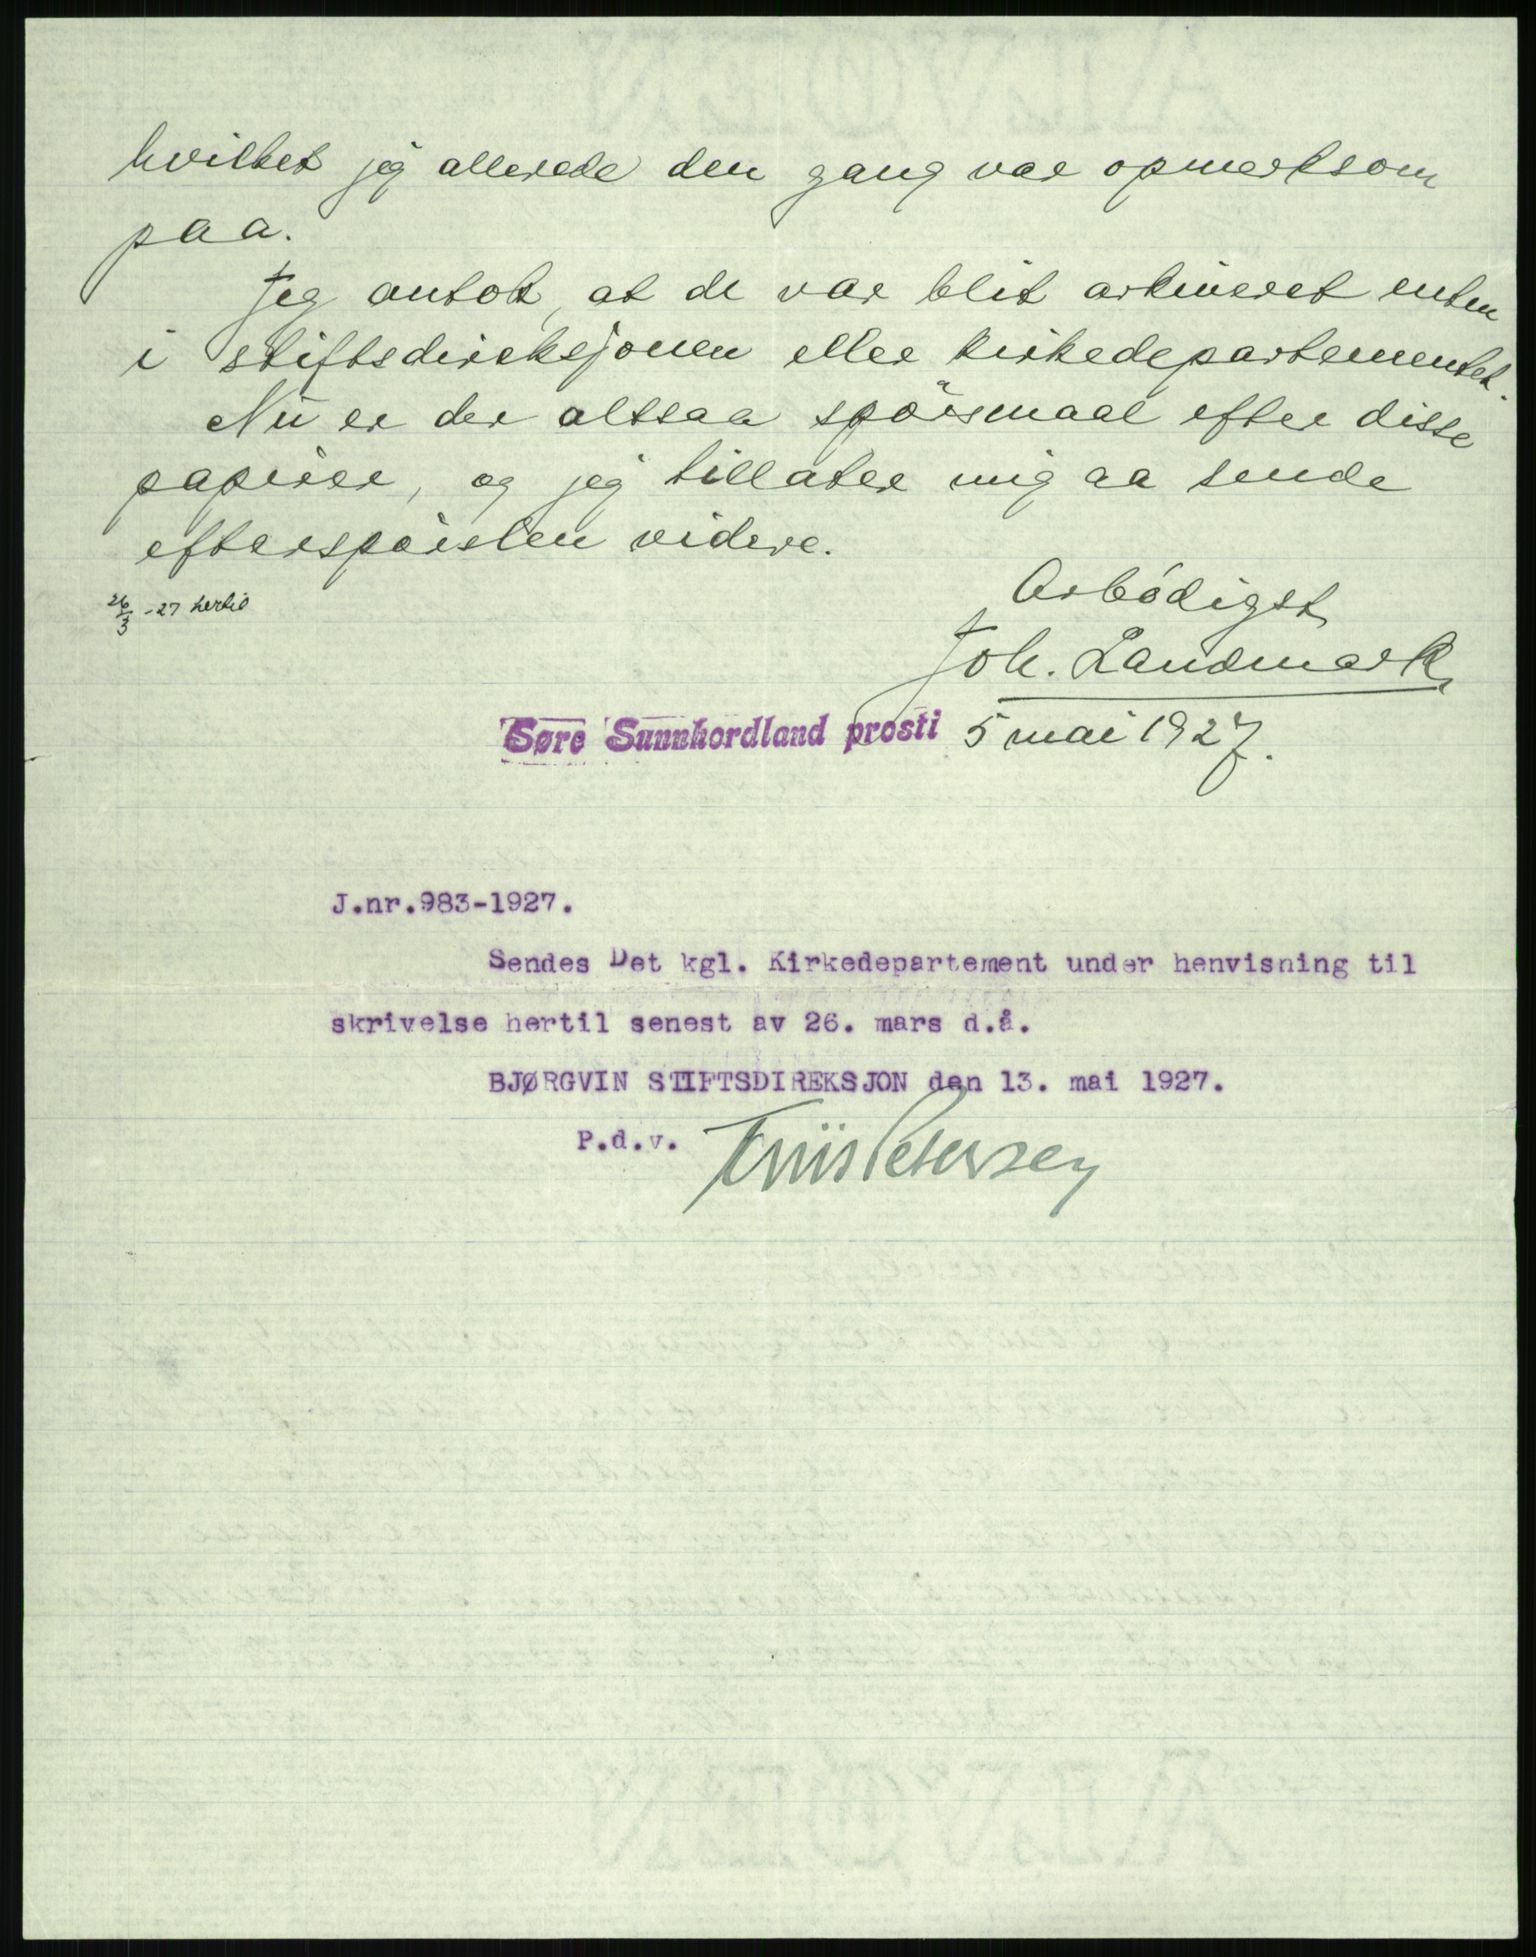 hvilket jeg allerede den gang var opmerksom
paa.
Jeg antok, at de var blit arkiveret enten
i stiftsdireksjonen eller kirkedepartementet.
Nu er der altsaa spörsmaal efter disse
papirer, og jeg tillater mig aa sende
efterspörslen videre.
26/3 -27 hertil
Arbödigst
Joh. Landmark
Søre Sunnhordland prosti 5 mai 1927.
J.nr.983-1927.
Sendes Det kgl. Kirkedepartement under henvisning til
skrivelse hertil senest av 26. mars d.å.
BJØRGVIN STIFTSDIREKSJON den 13. mai 1927.
P.d.v.
Friis Petersen